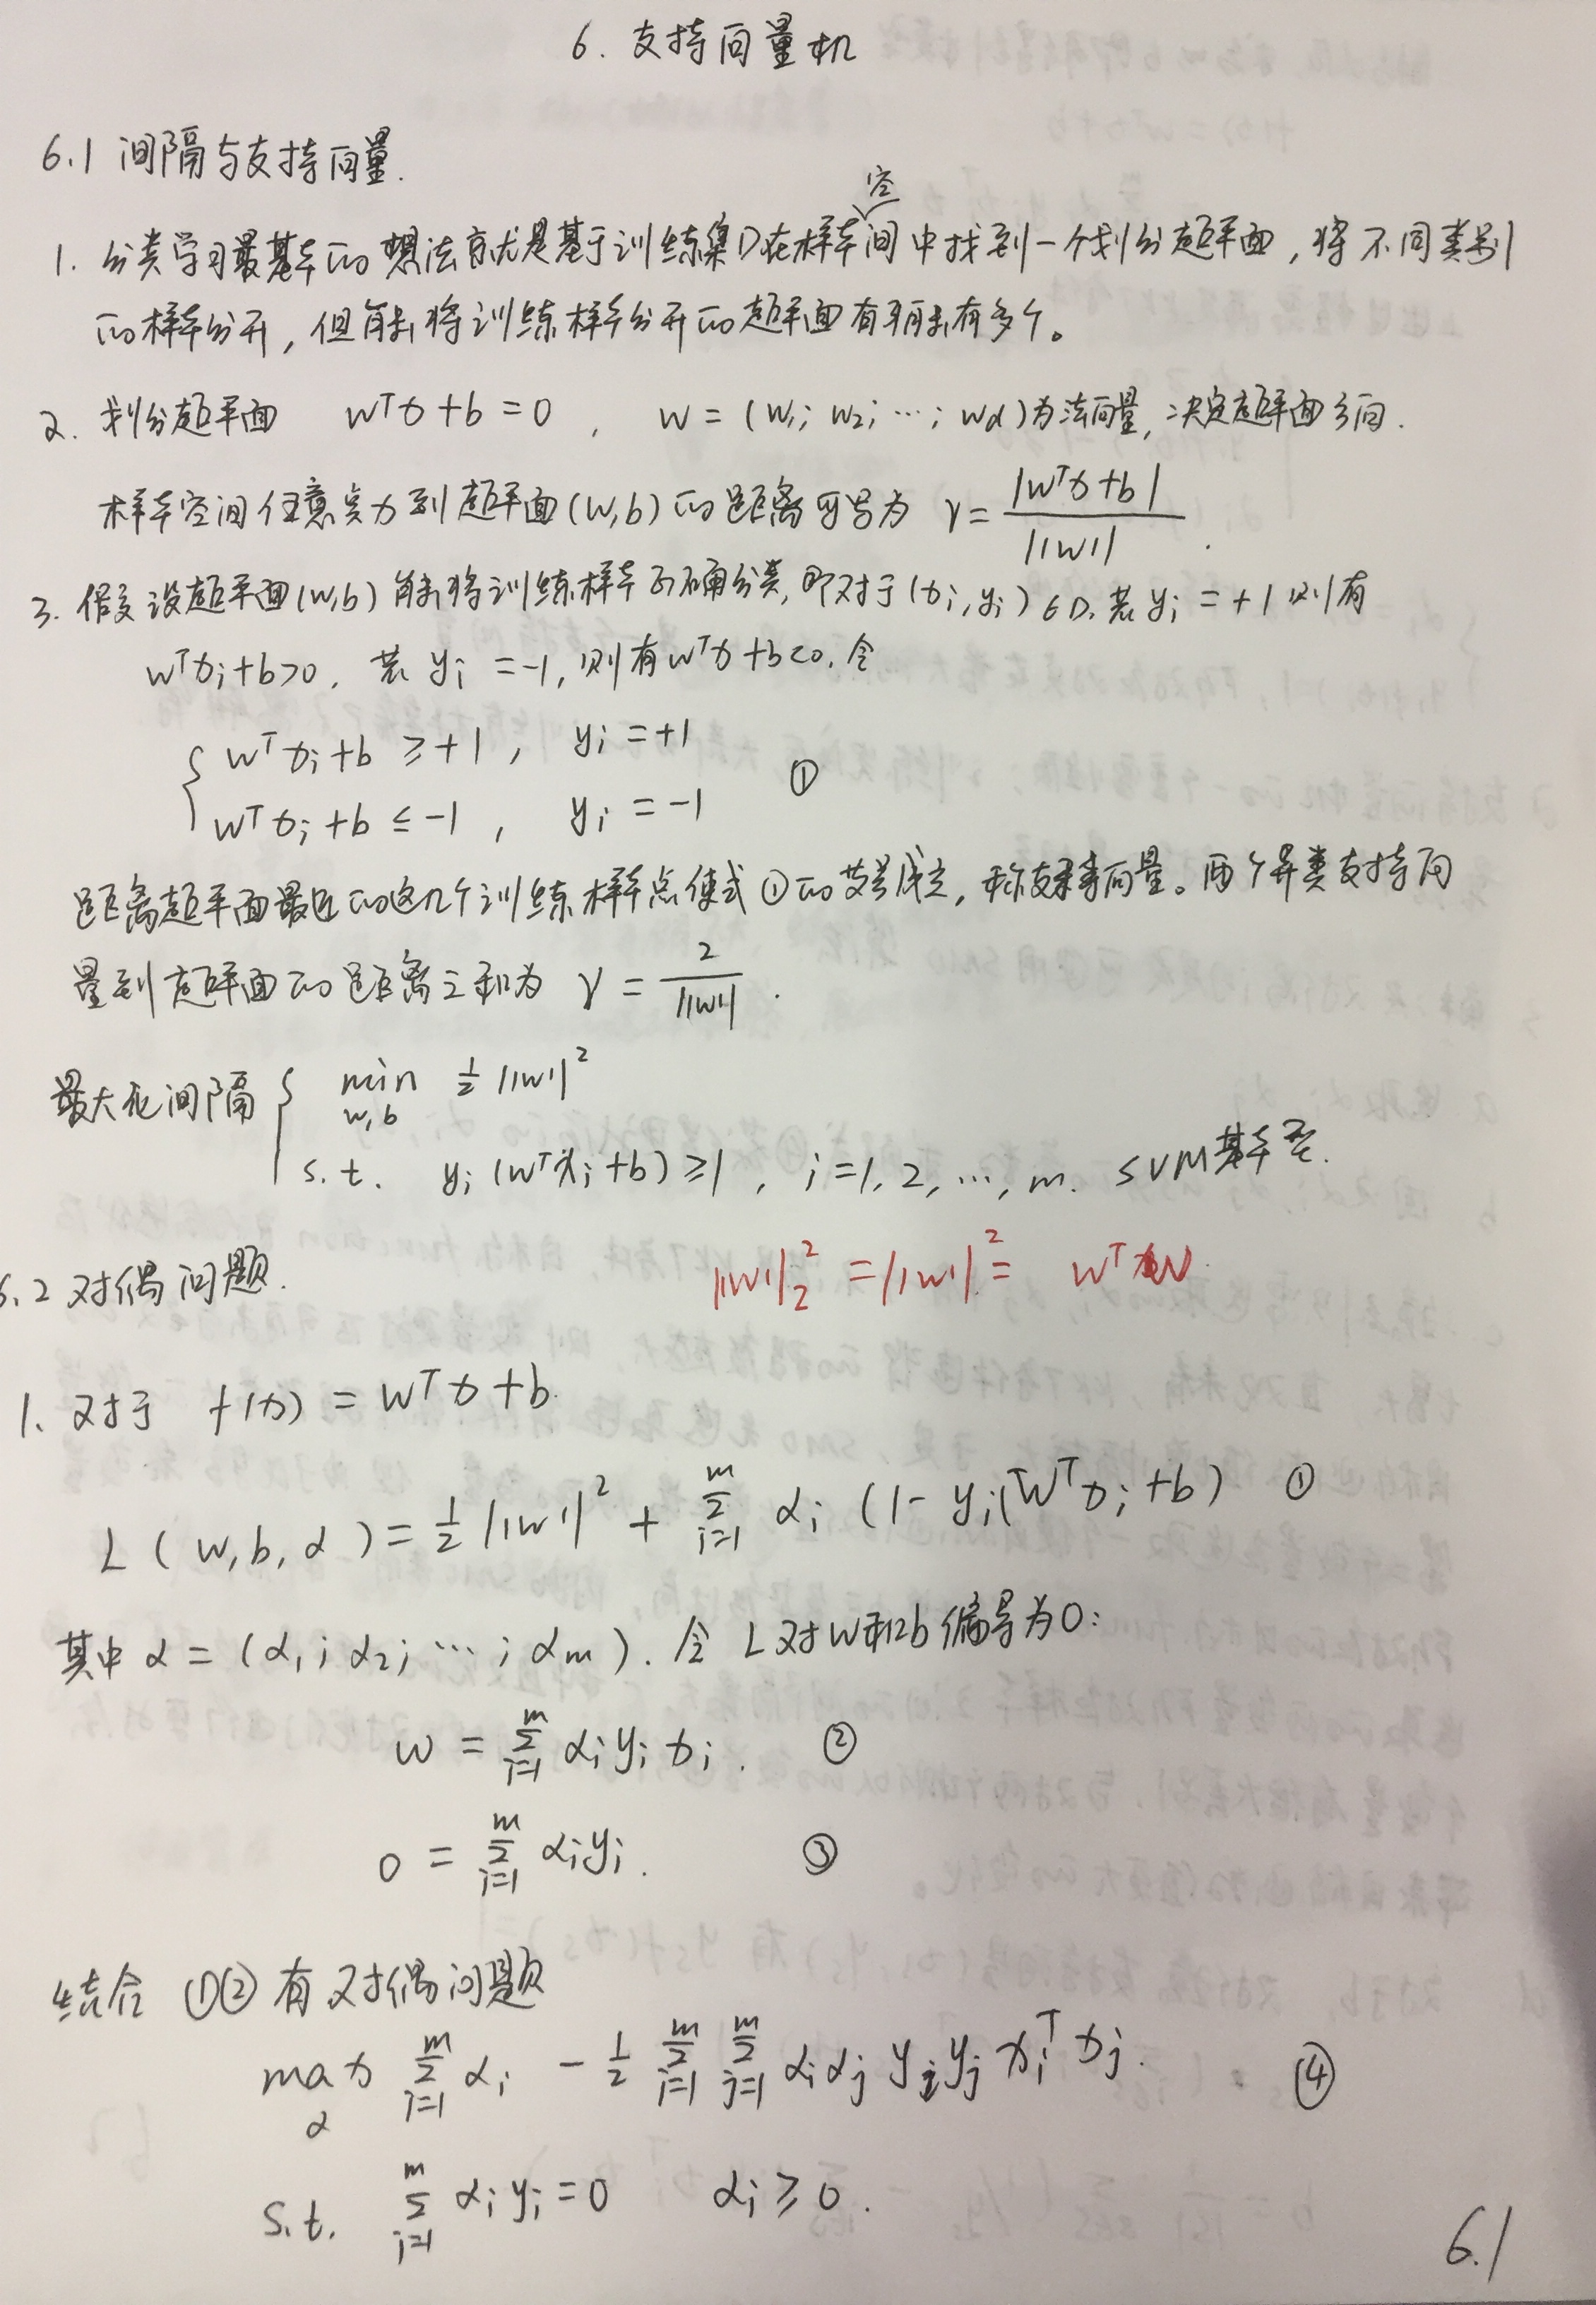 6. 支持向量机
6.1 间隔与支持向量.
1. 分类学习最基本的想法就是基于训练集D在样本空间中找到一个划分超平面,将不同类别
的样本分开,但能将训练样本分开的超平面有可能有多个。
2. 划分超平面 wᵀx+b=0, w=(w₁; w₂; …; wd)为法向量,决定超平面方向.
样本空间任意点x到超平面(w,b)的距离可写为 γ = |wᵀx+b| / ||w|| .
3. 假设超平面(w,b)能将训练样本正确分类,即对于(xᵢ,yᵢ)∈D,若yᵢ=+1则有
wᵀxᵢ+b>0, 若yᵢ=-1,则有wᵀx+b<0,令
{ wᵀxᵢ+b ≥ +1, yᵢ=+1
wᵀxᵢ+b ≤ -1, yᵢ=-1 ①
距离超平面最近的这几个训练样本点使式①的等号成立,称支持向量。两个异类支持向
量到超平面的距离之和为 γ = 2 / ||w|| .
最大化间隔 { min w,b ½||w||²
s.t. yᵢ(wᵀxᵢ+b)≥1, i=1,2,…,m. SVM基本型.
||w||₂² = ||w||² = wᵀw.
6.2 对偶问题.
1. 对于 f(x) = wᵀx+b.
L(w,b,α) = ½||w||² + Σᵢ₌₁ᵐ αᵢ(1-yᵢ(wᵀxᵢ+b) ①
其中α=(α₁; α₂; …; αm). 令L对w和b偏导为0:
w = Σᵢ₌₁ᵐ αᵢyᵢxᵢ. ②
0 = Σᵢ₌₁ᵐ αᵢyᵢ. ③
结合①②有对偶问题
max α Σᵢ₌₁ᵐ αᵢ - ½ Σᵢ₌₁ᵐ Σⱼ₌₁ᵐ αᵢαⱼyᵢyⱼxᵢᵀxⱼ. ④
s.t. Σᵢ₌₁ᵐ αᵢyᵢ=0 αᵢ≥0.
6.1